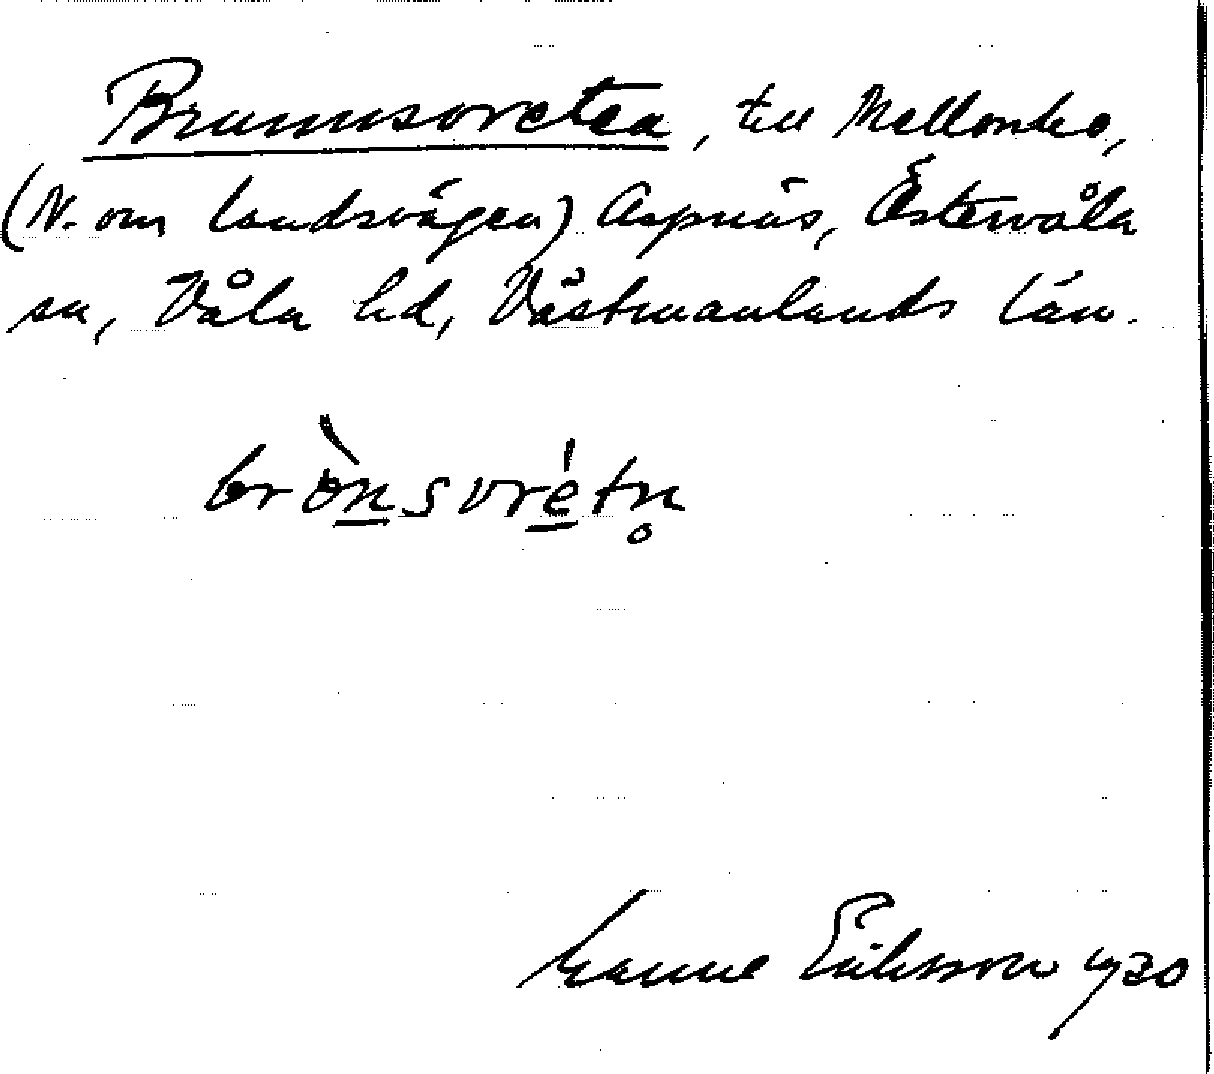 Brunnsvreten, till Mellonbo,
(N. om landsvägen) Aspnäs, Östervåla
sn, Våla hd, Västmanlands län.
brònsvrétn̥
Manne Eriksson 1930